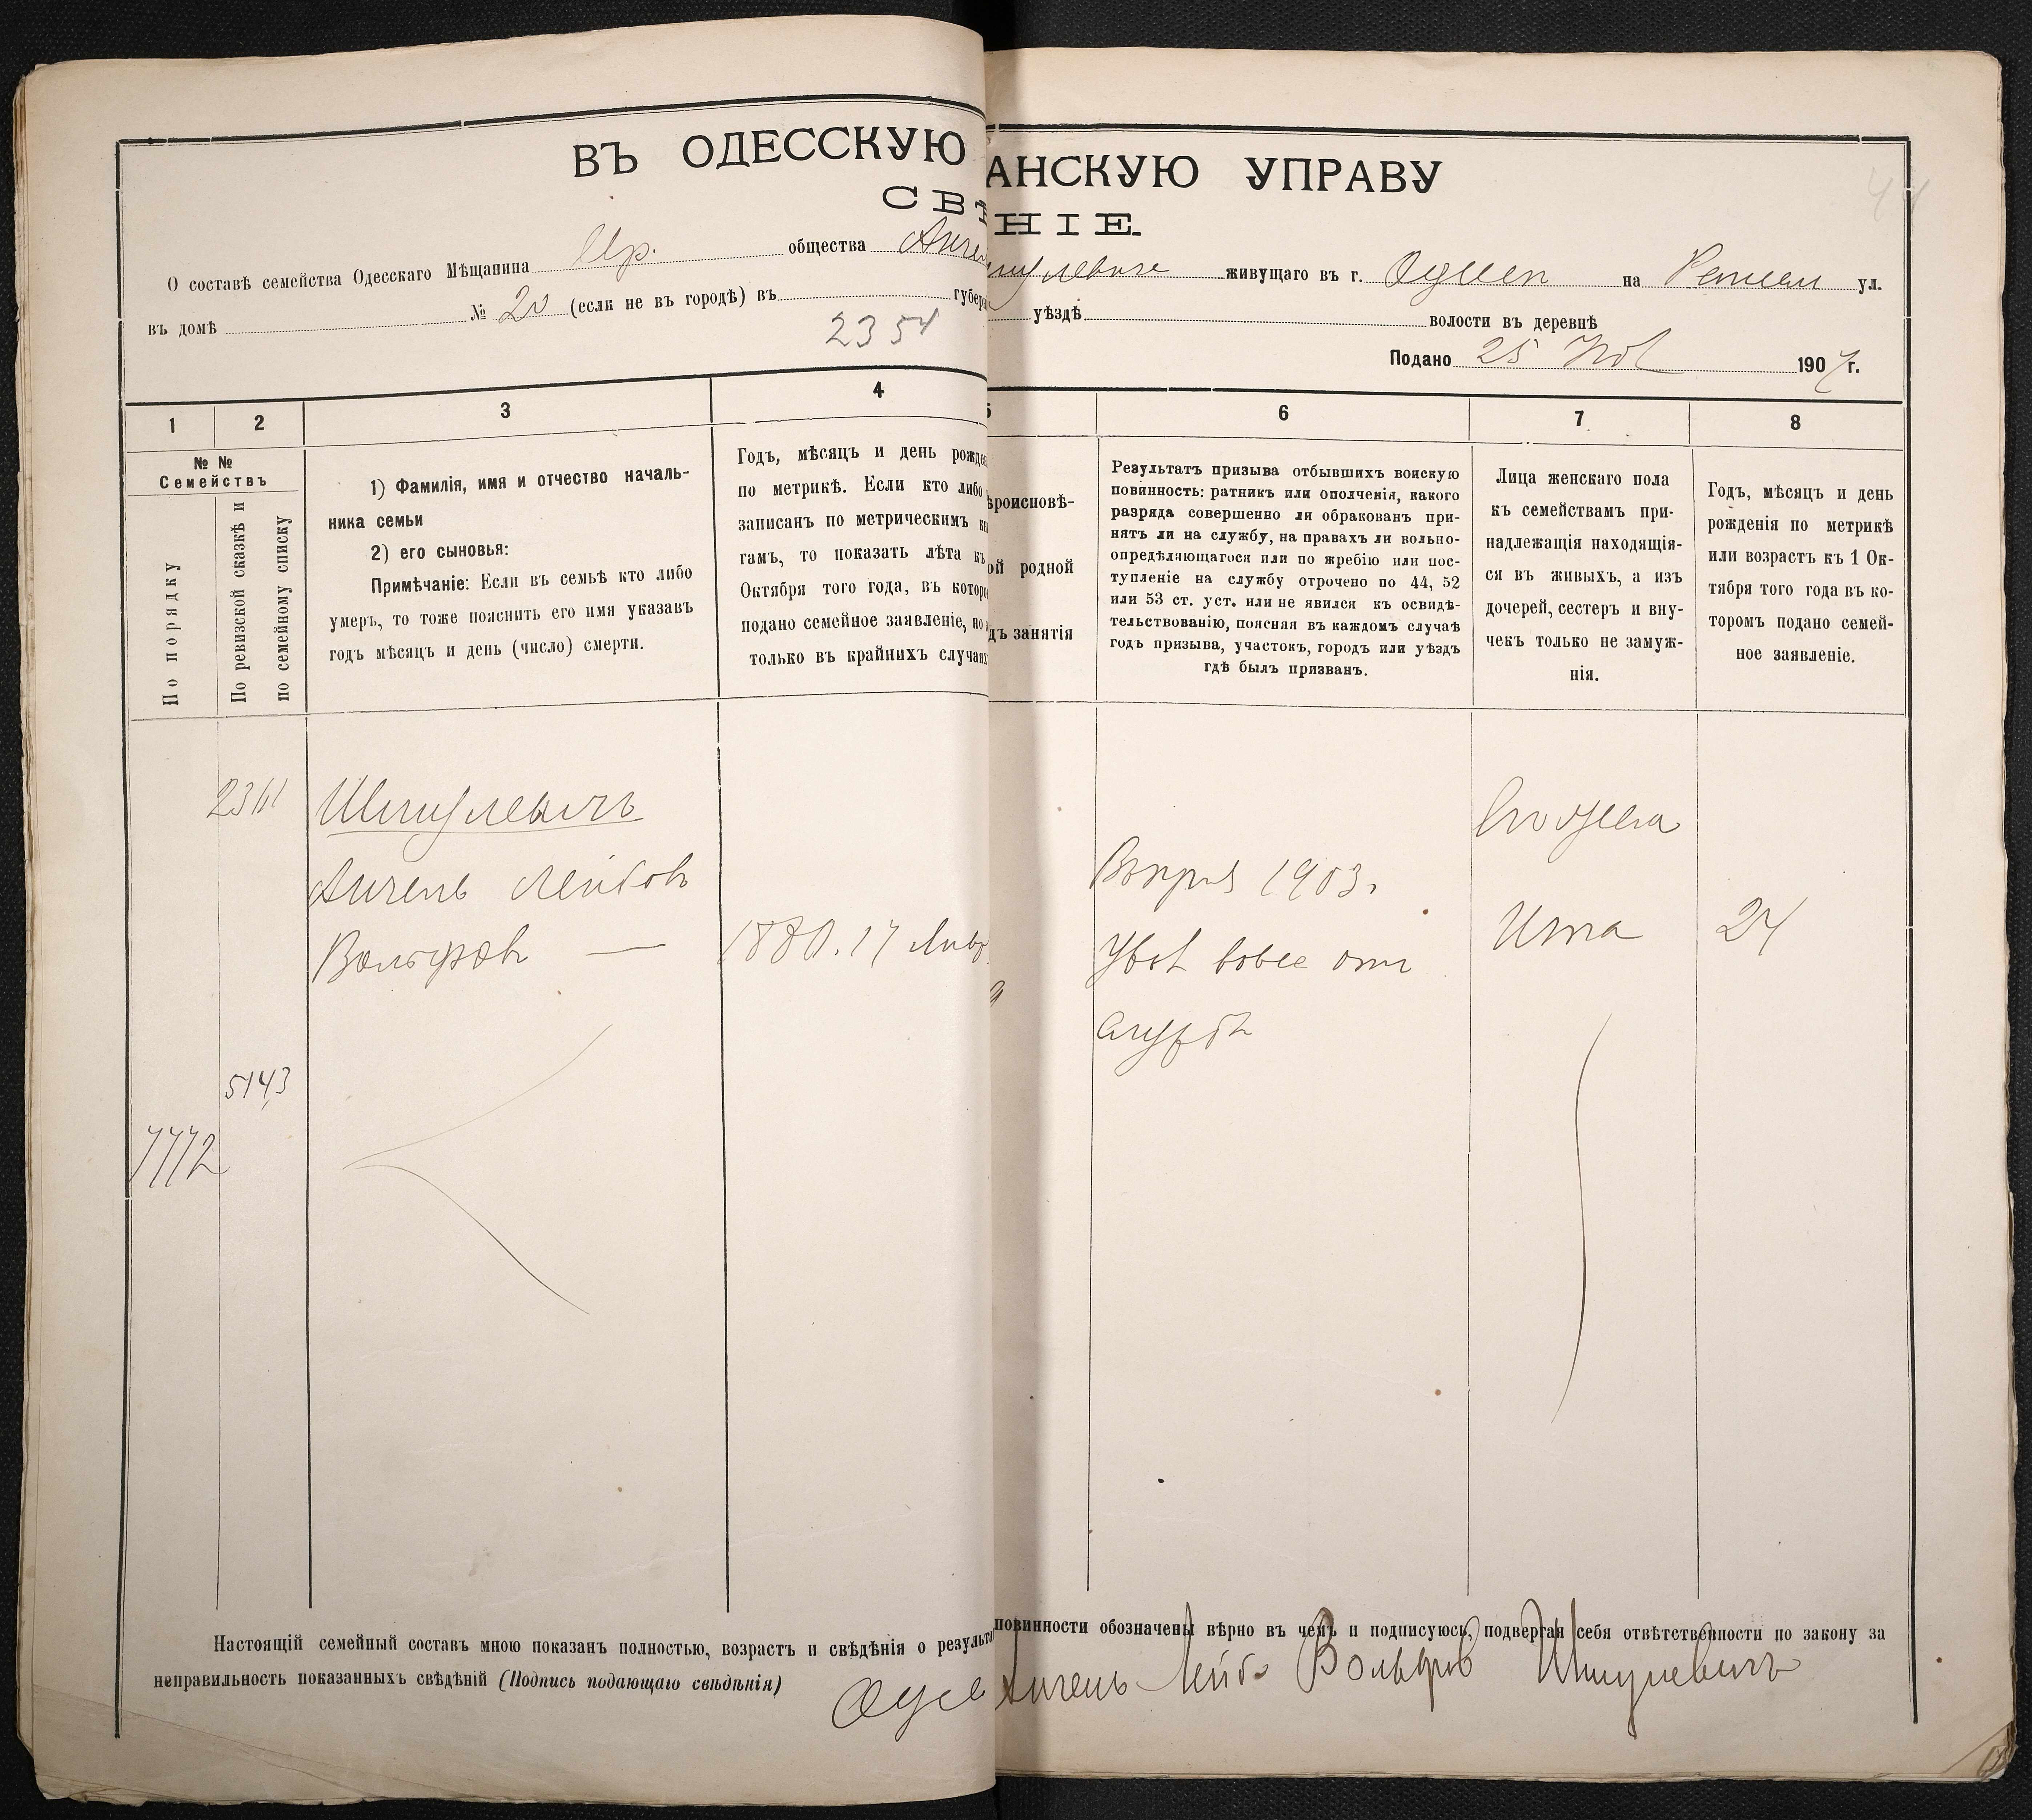 ВЪ ОДЕССКУЮ АНСКУЮ УПРАВУ
СВѢ НІЕ.
О составѣ семейства Одесскаго Мѣщанина общества живущаго въ г. на ул.
въ домѣ № 20 (если не въ городѣ) въ губер уѣздѣ волости въ деревнѣ
2354
Подано 25 190 г.
1 2 3 4 5 6 7 8
№ №
Семействъ
По порядку
По ревизской сказкѣ и
по семейному списку
1) Фамилія, имя и отчество началь-
ника семьи
2) его сыновья:
Примѣчаніе: Если въ семьѣ кто либо
умеръ, то тоже пояснить его имя указавъ
годъ мѣсяцъ и день (число) смерти.
Годъ, мѣсяцъ и день рожде
по метрикѣ. Если кто либо
записанъ по метрическимъ кн
гамъ, то показать лѣта къ
Октября того года, въ которо
подано семейное заявленіе, но
только въ крайнихъ случаяхъ
ѣроисповѣ-
ой родной
дъ занятія
Результатъ призыва отбывшихъ воискую
повинность: ратникъ или ополченія, какого
разряда совершенно ли обракованъ при-
нятъ ли на службу, на правахъ ли вольно-
опредѣляющагося или по жребію или пос-
тупленіе на службу отрочено по 44, 52
или 53 ст. уст. или не явился къ освидѣ-
тельствованію, поясняя въ каждомъ случаѣ
годъ призыва, участокъ, городъ или уѣздъ
гдѣ былъ призванъ.
Лица женскаго пола
къ семействамъ при-
надлежащія находящія-
ся въ живыхъ, а изъ
дочерей, сестеръ и вну-
чекъ только не замуж-
нія.
Годъ, мѣсяцъ и день
рожденія по метрикѣ
или возрастъ къ 1 Ок-
тября того года въ ко-
торомъ подано семей-
ное заявленіе.
Шмулевичъ
Анчель Лейбовъ
Вольфовъ —
1880. 17 Янв
1903.
службы
Ита
24
5143
7772
Настоящій семейный составъ мною показанъ полностью, возрастъ и свѣдѣнія о результа повинности обозначены вѣрно въ чемъ и подписуюсь, подвергая себя отвѣтственности по закону за
неправильность показанныхъ свѣдѣній (Подпись подающаго свѣдѣнія)
Анчель Лейбъ Вольфовъ Шмулевичъ